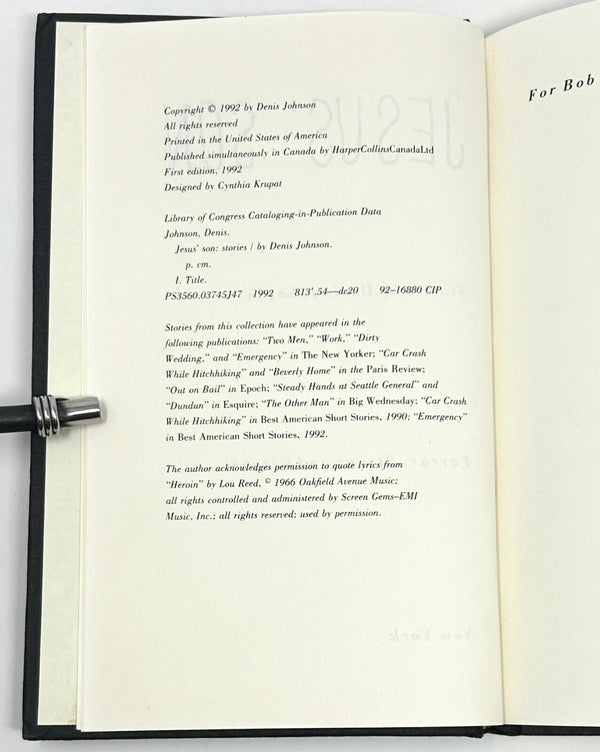 Copyright © 1992 by Denis Johnson
All rights reserved
Printed in the United States of America
Published simultaneously in Canada by HarperCollinsCanadaLtd
First edition, 1992
Designed by Cynthia Krupat
Library of Congress Cataloging-in-Publication Data
Johnson, Denis.
Jesus' son: stories / by Denis Johnson.
p. cm.
I. Title.
PS3560.O3745J47 1992 813'.54—dc20 92-16880 CIP
Stories from this collection have appeared in the
following publications: “Two Men,” “Work,” “Dirty
Wedding,” and “Emergency” in The New Yorker; “Car Crash
While Hitchhiking” and “Beverly Home” in the Paris Review;
“Out on Bail” in Epoch; “Steady Hands at Seattle General” and
“Dundun” in Esquire; “The Other Man” in Big Wednesday; “Car Crash
While Hitchhiking” in Best American Short Stories, 1990; “Emergency”
in Best American Short Stories, 1992.
The author acknowledges permission to quote lyrics from
“Heroin” by Lou Reed, © 1966 Oakfield Avenue Music;
all rights controlled and administered by Screen Gems–EMI
Music, Inc.; all rights reserved; used by permission.
For Bob
JESUS'
New York